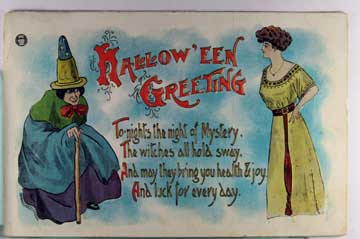 HALLOW'EEN
GREETING
To-night's the night of Mystery.
The witches all hold sway.
And may they bring you health & joy.
And luck for every day.